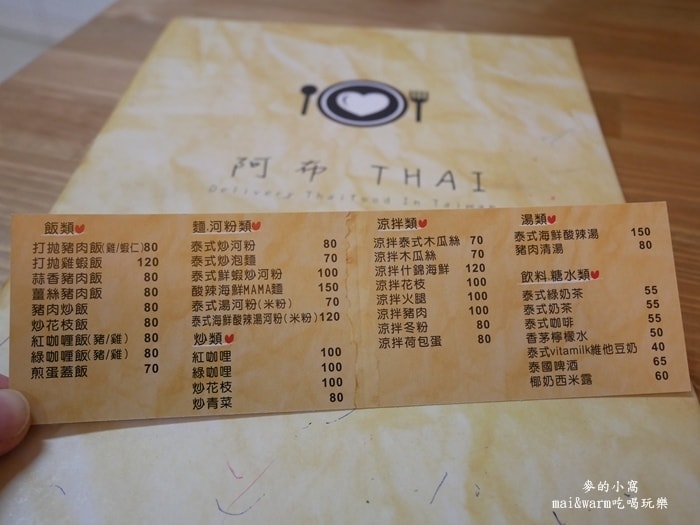 阿布 THAI
Delivery Thaifood In Taiwan
飯類
打拋豬肉飯(雞/蝦仁)80
打拋雞蝦飯 120
蒜香豬肉飯 80
薑絲豬肉飯 80
豬肉炒飯 80
炒花枝飯 80
紅咖喱飯(豬/雞) 80
綠咖喱飯(豬/雞) 80
煎蛋蓋飯 70
麵.河粉類
泰式炒河粉 80
泰式炒泡麵 70
泰式鮮蝦炒河粉 100
酸辣海鮮MAMA麵 150
泰式湯河粉(米粉) 70
泰式海鮮酸辣湯河粉(米粉)120
炒類
紅咖哩 100
綠咖哩 100
炒花枝 100
炒青菜 80
涼拌類
涼拌泰式木瓜絲 70
涼拌木瓜絲 70
涼拌什錦海鮮 120
涼拌花枝 100
涼拌火腿 100
涼拌豬肉 100
涼拌冬粉 80
涼拌荷包蛋 80
湯類
泰式海鮮酸辣湯 150
豬肉清湯 80
飲料.糖水類
泰式綠奶茶 55
泰式奶茶 55
泰式咖啡 55
香茅檸檬水 50
泰式vitamilk維他豆奶 40
泰國啤酒 65
椰奶西米露 60
麥的小窩
mai&warm吃喝玩樂